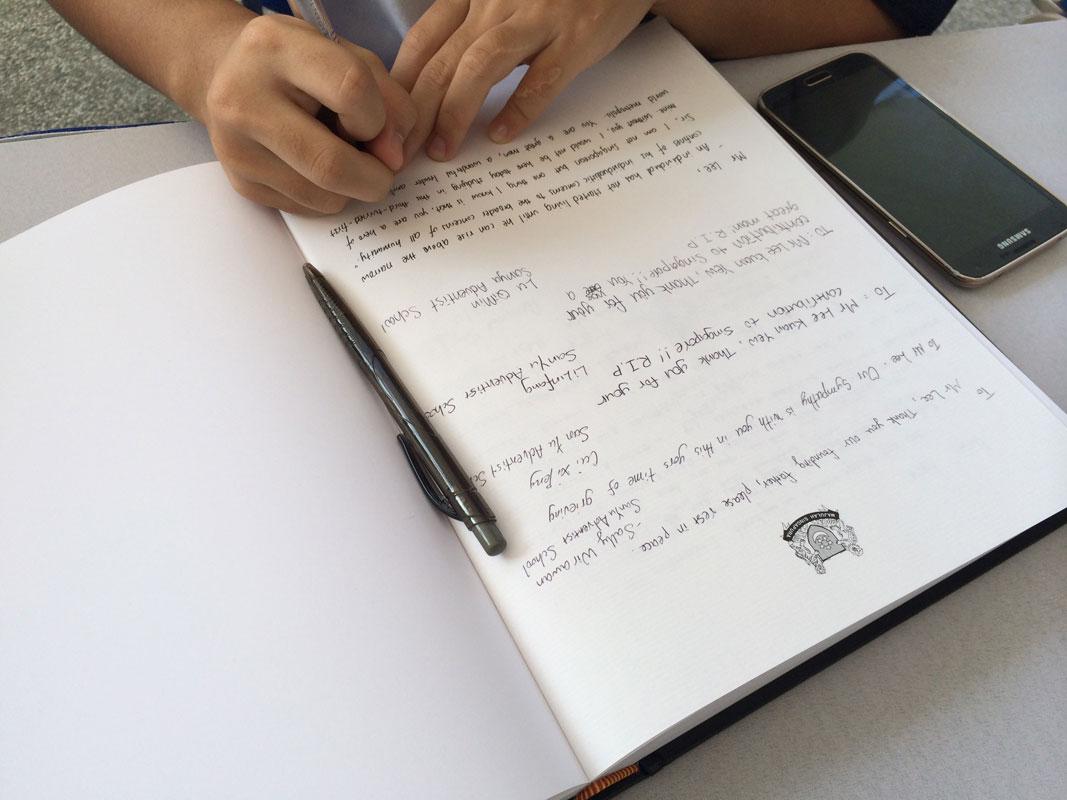 MAJULAH SINGAPURA
To Mr Lee, Thank you our founding father, please rest in peace.
- Sally Wirawan
SanYu Adventist School
To Mr Lee. Our Sympathy is with you in this yors time of grieving
Cai Xi Peng
San Yu Adventist Sch
To : Mr Lee Kuan Yew, Thank you for your
contribution to Singapore!! R.I.P
Li Linfang
SanYu Adventist Schoo
To: Mr Lee Kuan Yew, Thank you for your
contribution to Singapore!! You a
great man! R.I.P
Lu QiMin
Sanyu Adventist School
Mr Lee,
"An individual has not started living until he can rise above the narrow
confines of his individualistic concerns to the broader concerns of all humanity."
Sir, I am not singaporean but one thing I know is that, you are a hero of
mine. Without you, I would not be here today studying in this third-turned-first
world metropolis. You are a great man, a wonderful leader and
SAMSUNG